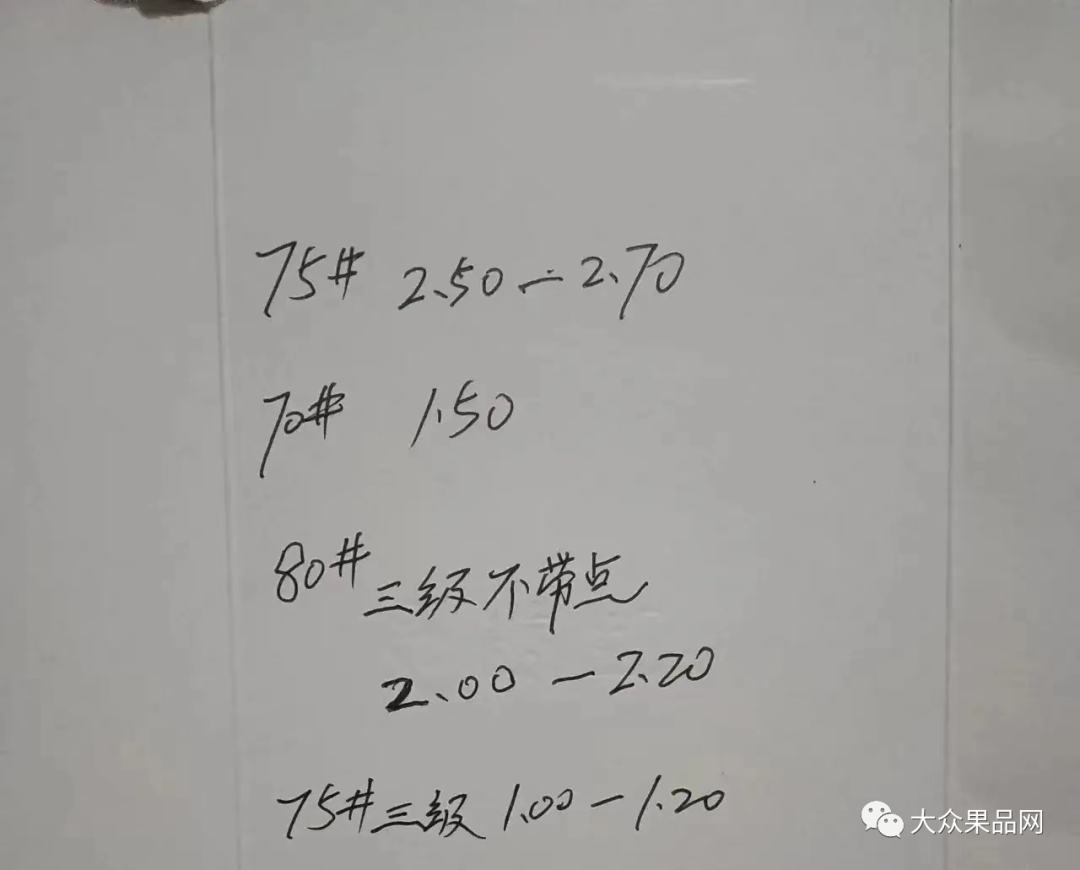 75# 2.50-2.70
70# 1.50
80# 三级不带点
2.00-2.20
75#三级 1.00-1.20
大众果品网